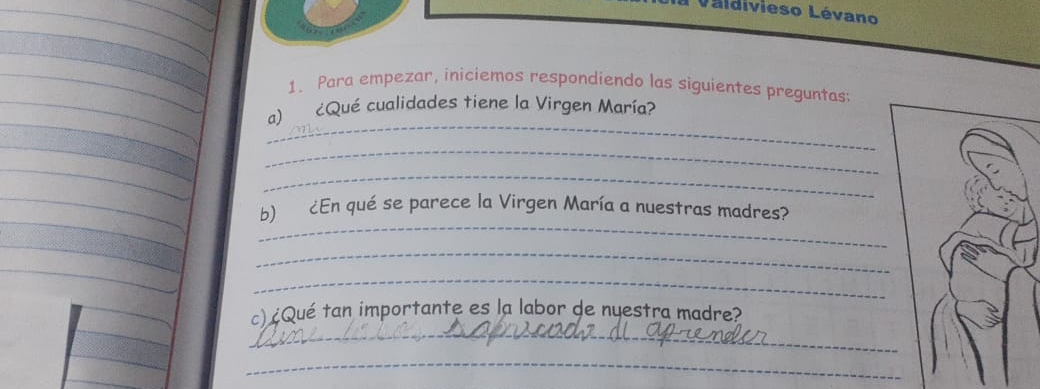 Valdivieso Lévano
1. Para empezar, iniciemos respondiendo las siguientes preguntas:
a) ¿Qué cualidades tiene la Virgen María?
b) ¿En qué se parece la Virgen María a nuestras madres?
c) ¿Qué tan importante es la labor de nuestra madre?
aprender